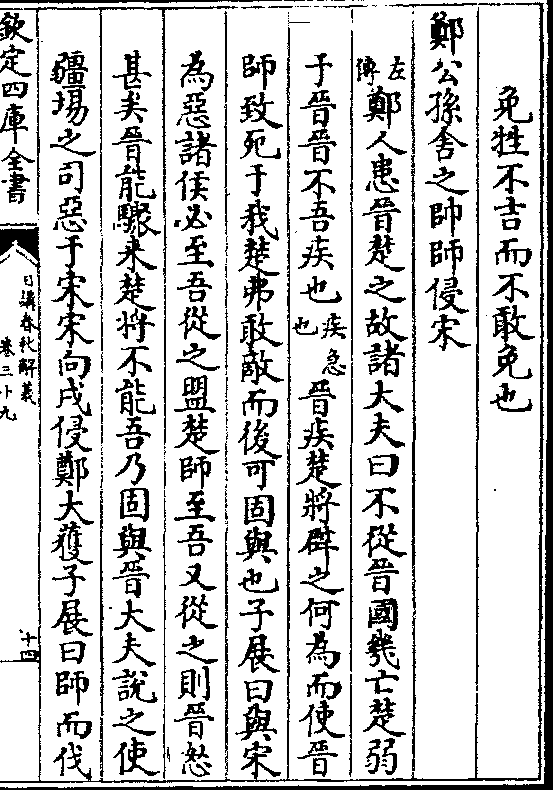 免牲不吉而不敢免也
鄭公孫舍之帥師侵宋
左傳鄭人患晉楚之故諸大夫曰不從晉國幾亡楚弱
于晉晉不吾疾也疾急也晉疾楚將辟之何為而使晉
師致死于我楚弗敢敵而後可固與也子展曰與宋
為惡諸侯必至吾從之盟楚師至吾又從之則晉怒
甚矣晉能驟来楚將不能吾乃固與晉大夫說之使
疆埸之司惡于宋宋向戌侵鄭大獲子展曰師而伐
欽定四庫全書
日講春秋解義
卷三十九
十四